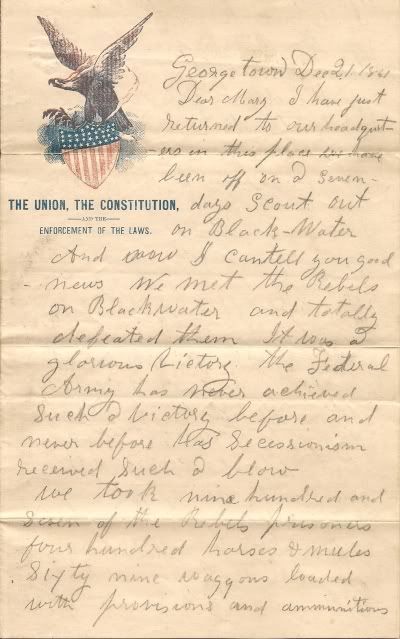 Georgetown Dec 21. 1861
Dear Mary I have just
returned to our headquart-
ers in this place we have
been off on a Seven-
THE UNION, THE CONSTITUTION,
AND THE
ENFORCEMENT OF THE LAWS.
days Scout out
on Black-Water
And now I can tell you good
news We met the Rebels
on Blackwater and totally
defeated them It was a
glorious Victory. the Federal
Army has never achieved
Such a Victory before and
never before has Secessionism
received Such a blow
we took nine hundred and
Seven of the Rebels prisoners
four hundred horses & mules
Sixty nine waggons loaded
with provisions and ammunitions